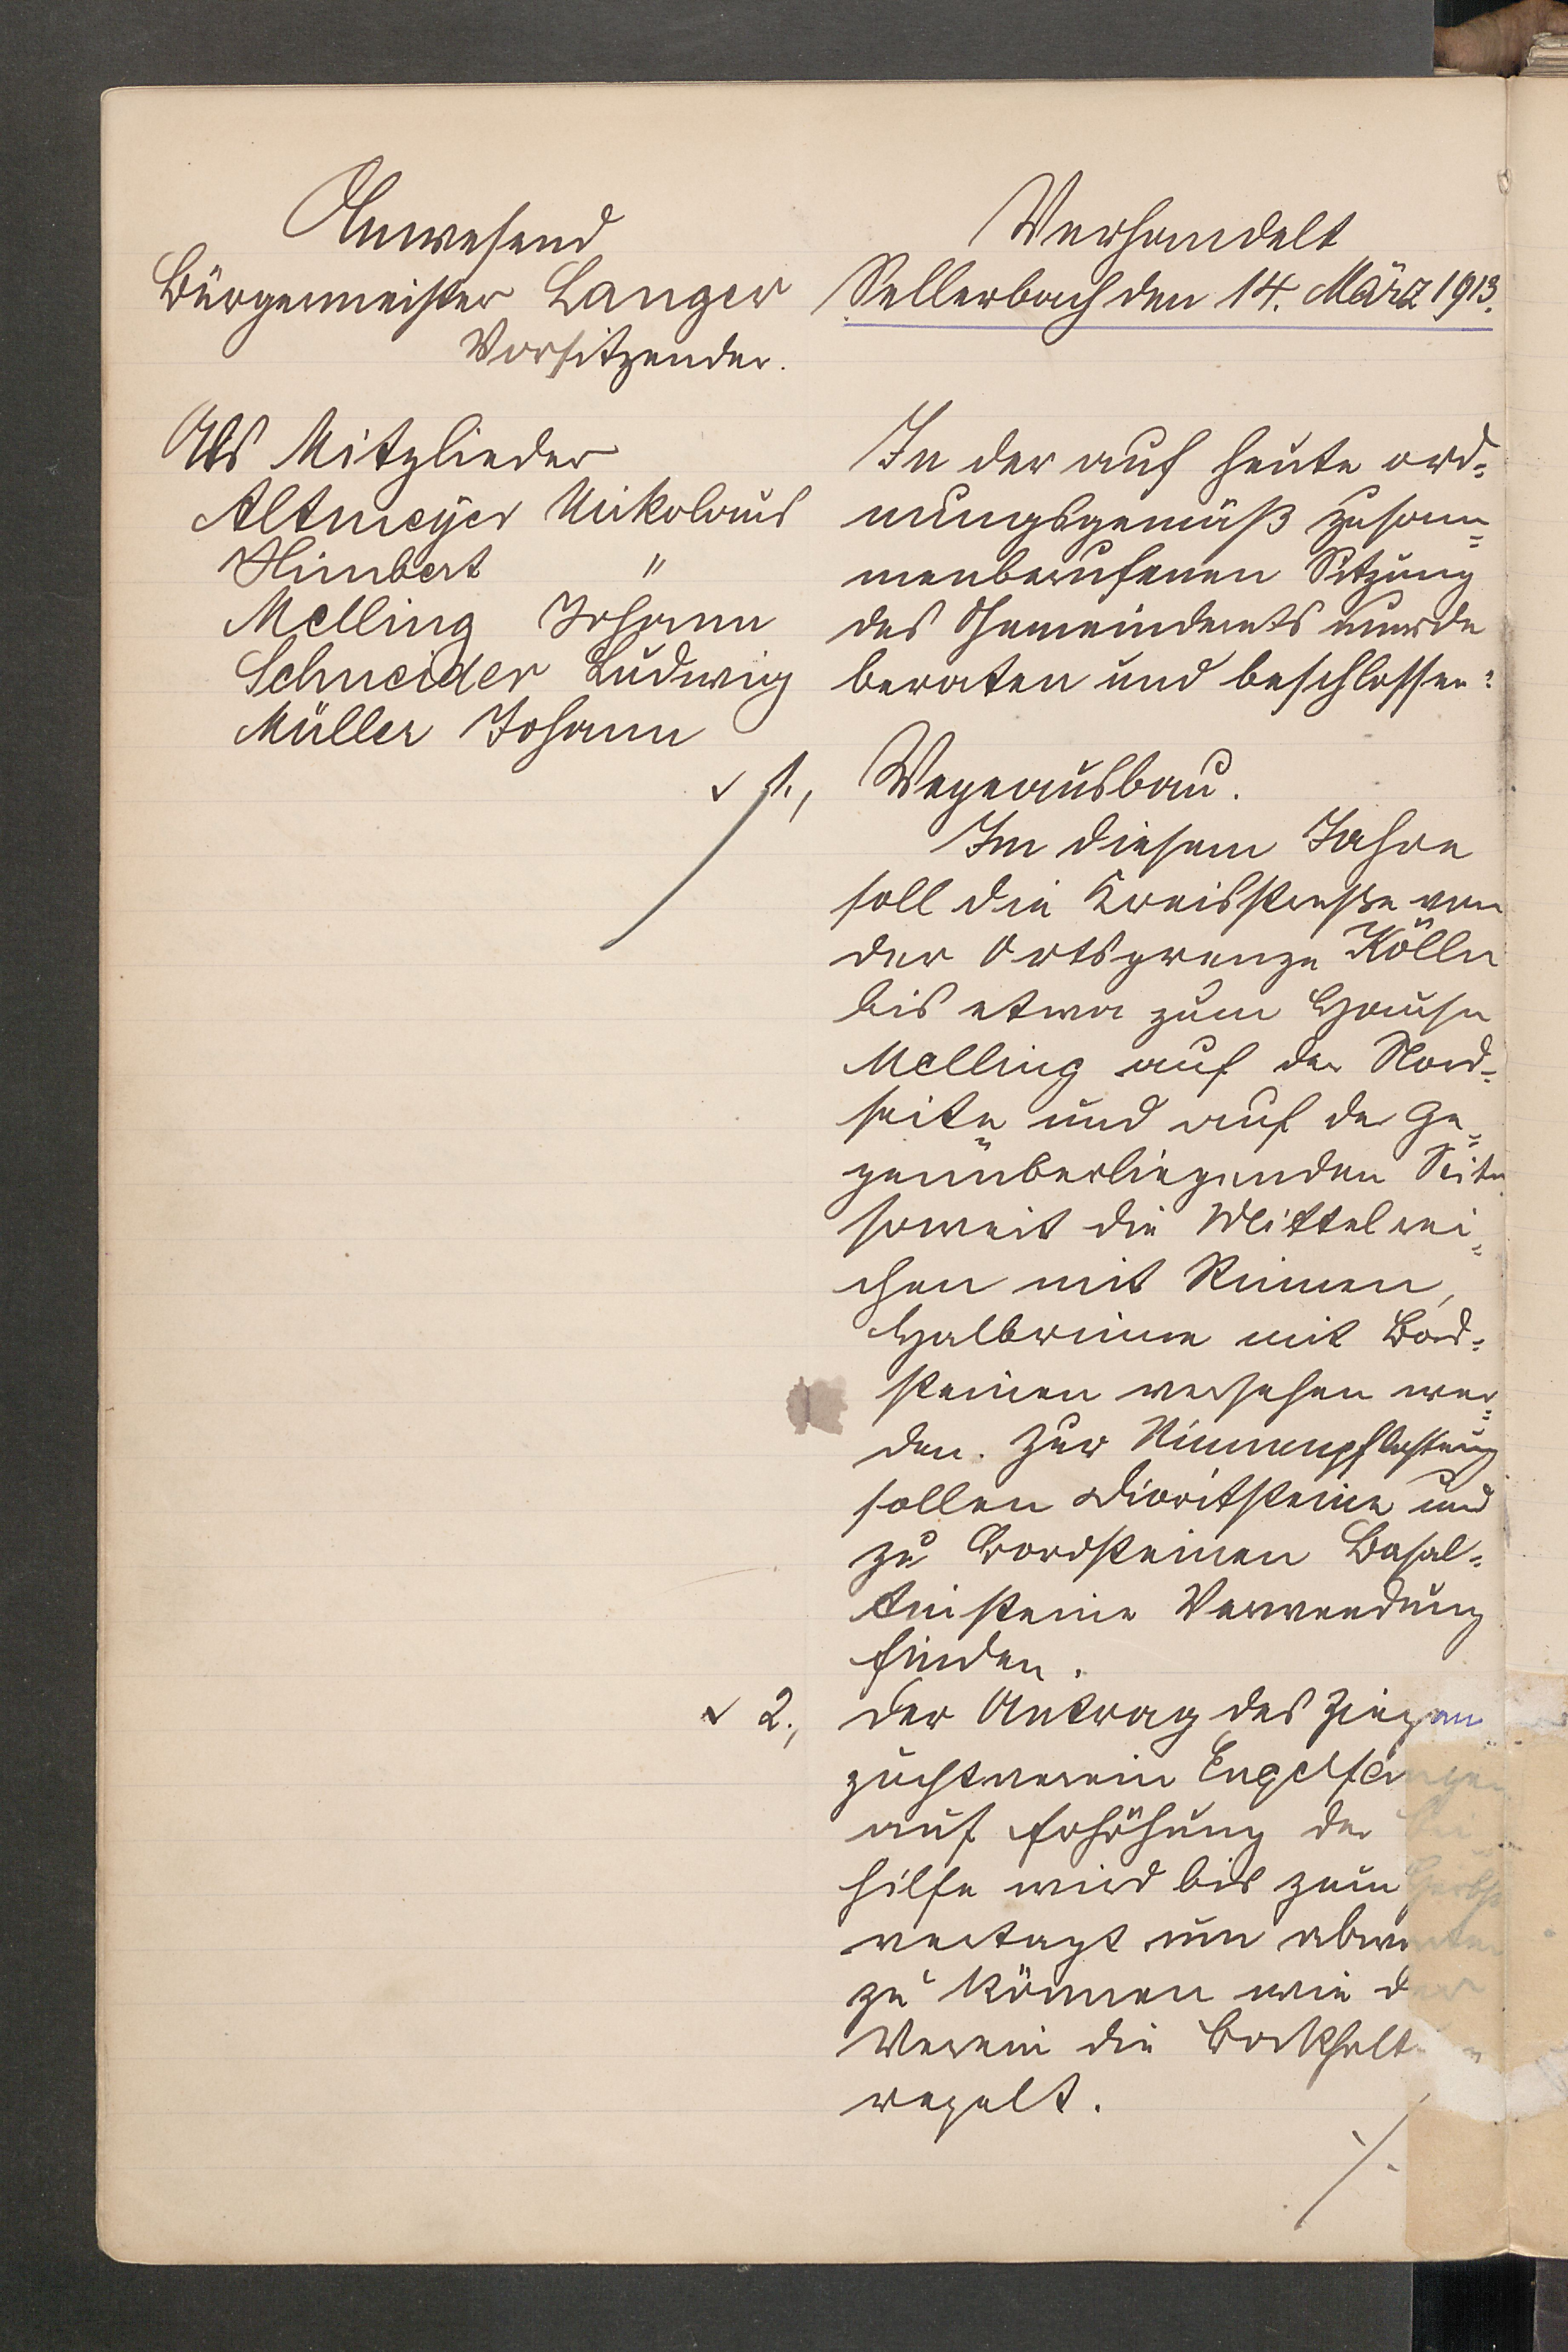 Anwesend
Bürgermeister Langer
Vorsitzender.
Als Mitglieder
Altmeyer Nikolaus
Himbert "
Melling Johann
Schneider Ludwig
Müller Johann
Verhandelt
Sellerbach den 14. März 1913.
In der auf heute ord-
nungsgemäß zusam-
menberufenen Sitzung
des Gemeinderats wurde
beraten und beschlossen:
1., Wegeausbau.
Im diesem Jahre
soll die Kreisstraße von
der Ortsgrenze Kölln
bis etwa zum Hause
Melling auf der Nord-
seite und auf der ge-
genüberliegenden Seite
soweit die Mittel rei-
chen mit Rinnen,
Halbrinne mit Bord-
steinen versehen wer-
den. Zur Rinnenpflasterung
sollen Dioritsteine und
zu Bordsteinen Basal-
tinsteine Verwendung
finden.
2., Der Antrag des Ziegen
zuchtverein Engelfangen
auf Erhöhung der Bei
hilfe wird bis zum Herbst
vertagt um abwarten
zu können wie der
Verein die Bockhaltung
regelt.
./.